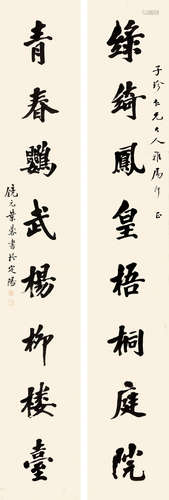 綠綺鳳皇梧桐庭院
子珍大兄大人雅属即正
青春鸚武楊柳樓臺
饒元業書於定陽